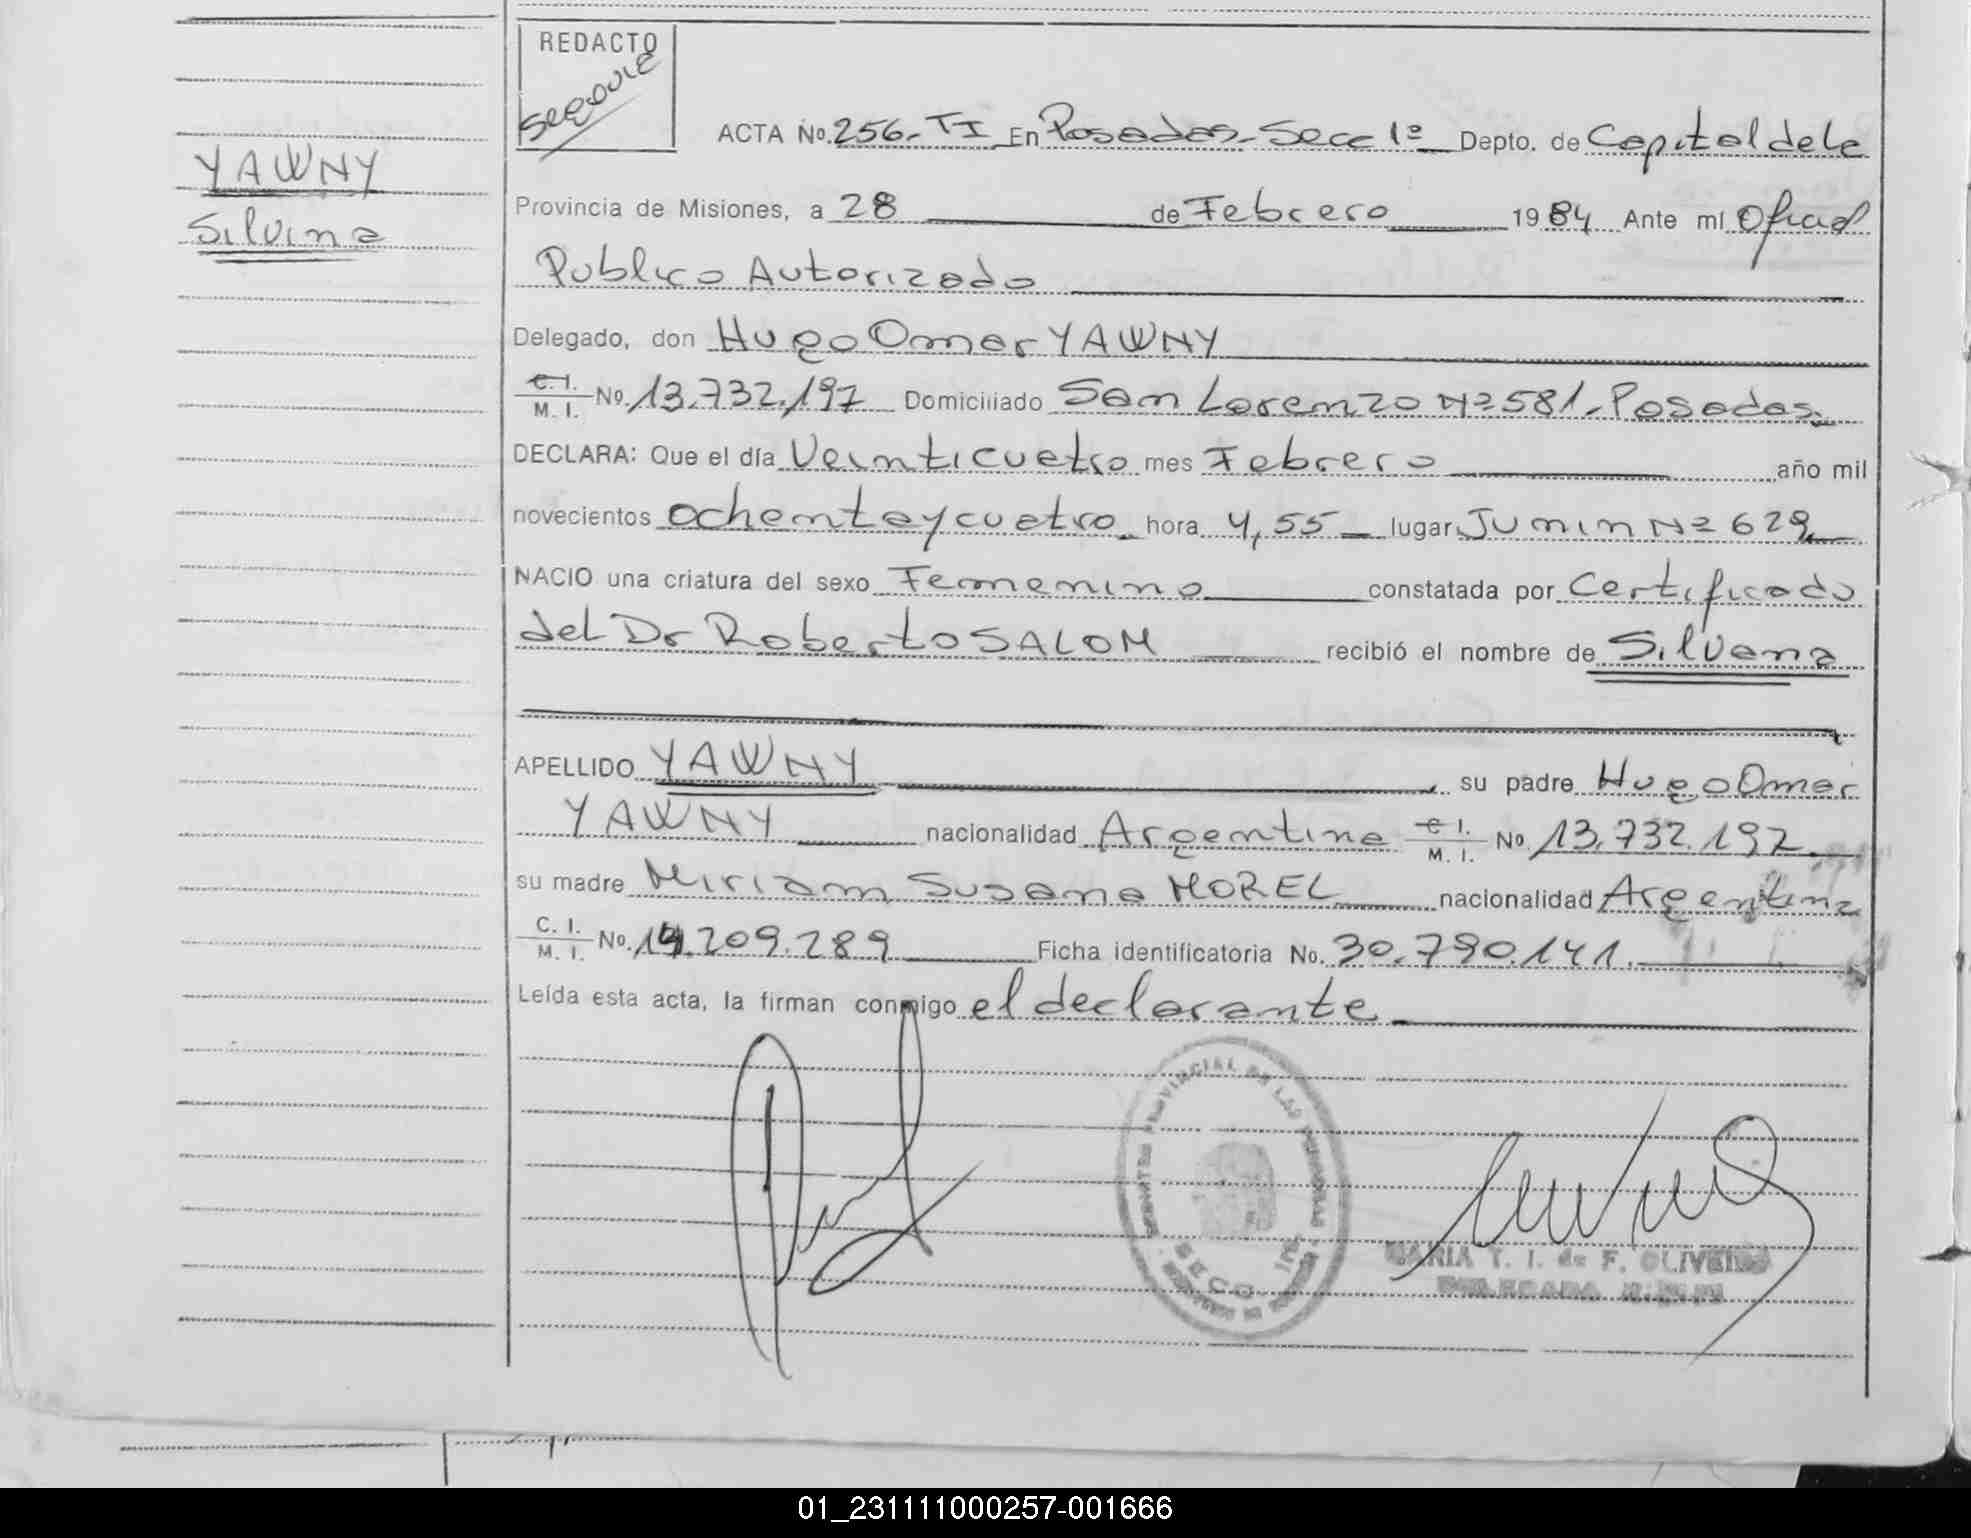 REDACTO
ACTA No. 256 - TI En Posadas - Secc 1ª Depto. de Capital de la
YAWNY
Silvina
Provincia de Misiones, a 28 de Febrero 1984 Ante mí Oficial
Publico Autorizado
Delegado, don Hugo Omar YAWNY
C. I. M. I. No. 13.732.197 Domiciliado San Lorenzo Nº 581 - Posadas.
DECLARA: Que el día Veinticuatro mes Febrero año mil
novecientos ochenta y cuatro hora 4,55 lugar Junin Nº 629
NACIO una criatura del sexo Femenino constatada por Certificado
del Dr Roberto SALOM recibió el nombre de Silvana
APELLIDO YAWNY su padre Hugo Omar
YAWNY nacionalidad Argentina C. I. M. I. No. 13.732.197.
su madre Miriam Susana MOREL nacionalidad Argentina
C. I. M. I. No. 14.209.289 Ficha identificatoria No. 30.790.141.
Leída esta acta, la firman conmigo el declarante
PROVINCIAL DE LAS PERSONAS
SECC.
MARIA T. I. de F. OLIVEIRA
DELEGADA
01_231111000257-001666